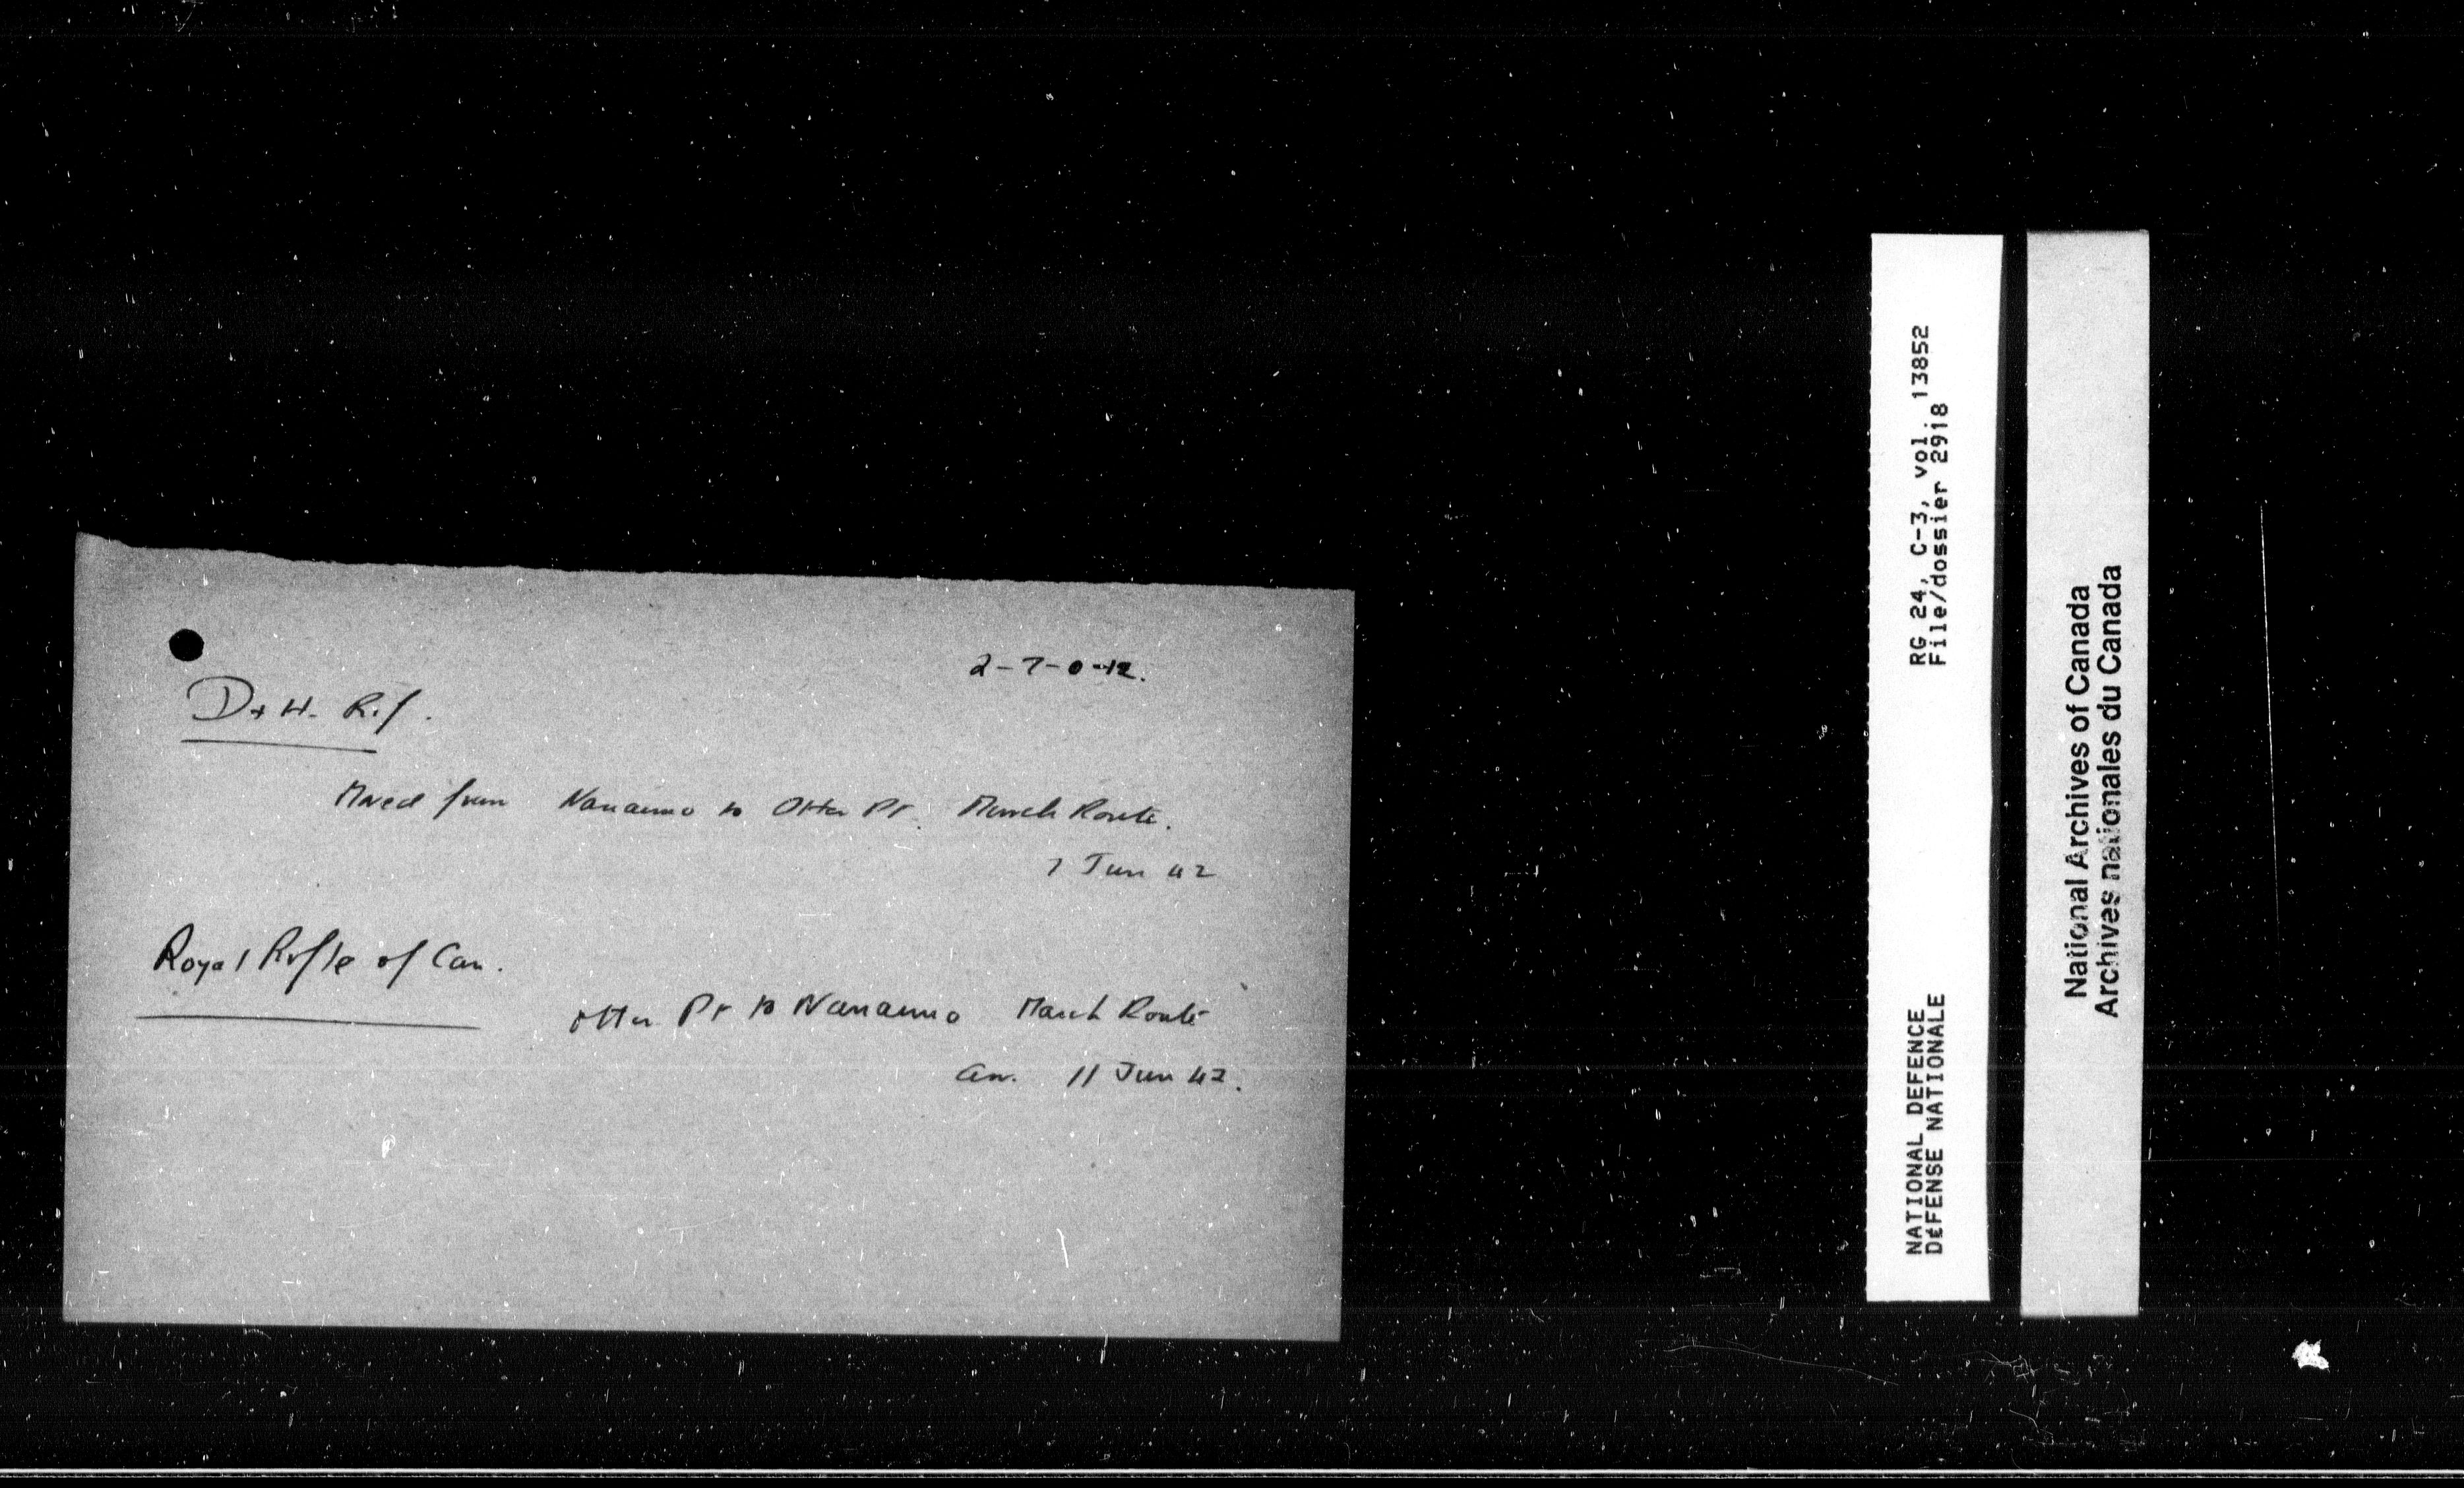 2-7-0-12.
D + H. Rif.
Moved from Nanaimo to Otter Pt. March Route.
7 Jun 42
Royal Rifle of Can.
Otter Pt to Nanaimo March Route
arr. 11 Jun 42.
RG 24, C-3, vol. 13852
File/dossier 2918
NATIONAL DEFENCE
DéFENSE NATIONALE
National Archives of Canada
Archives nationales du Canada